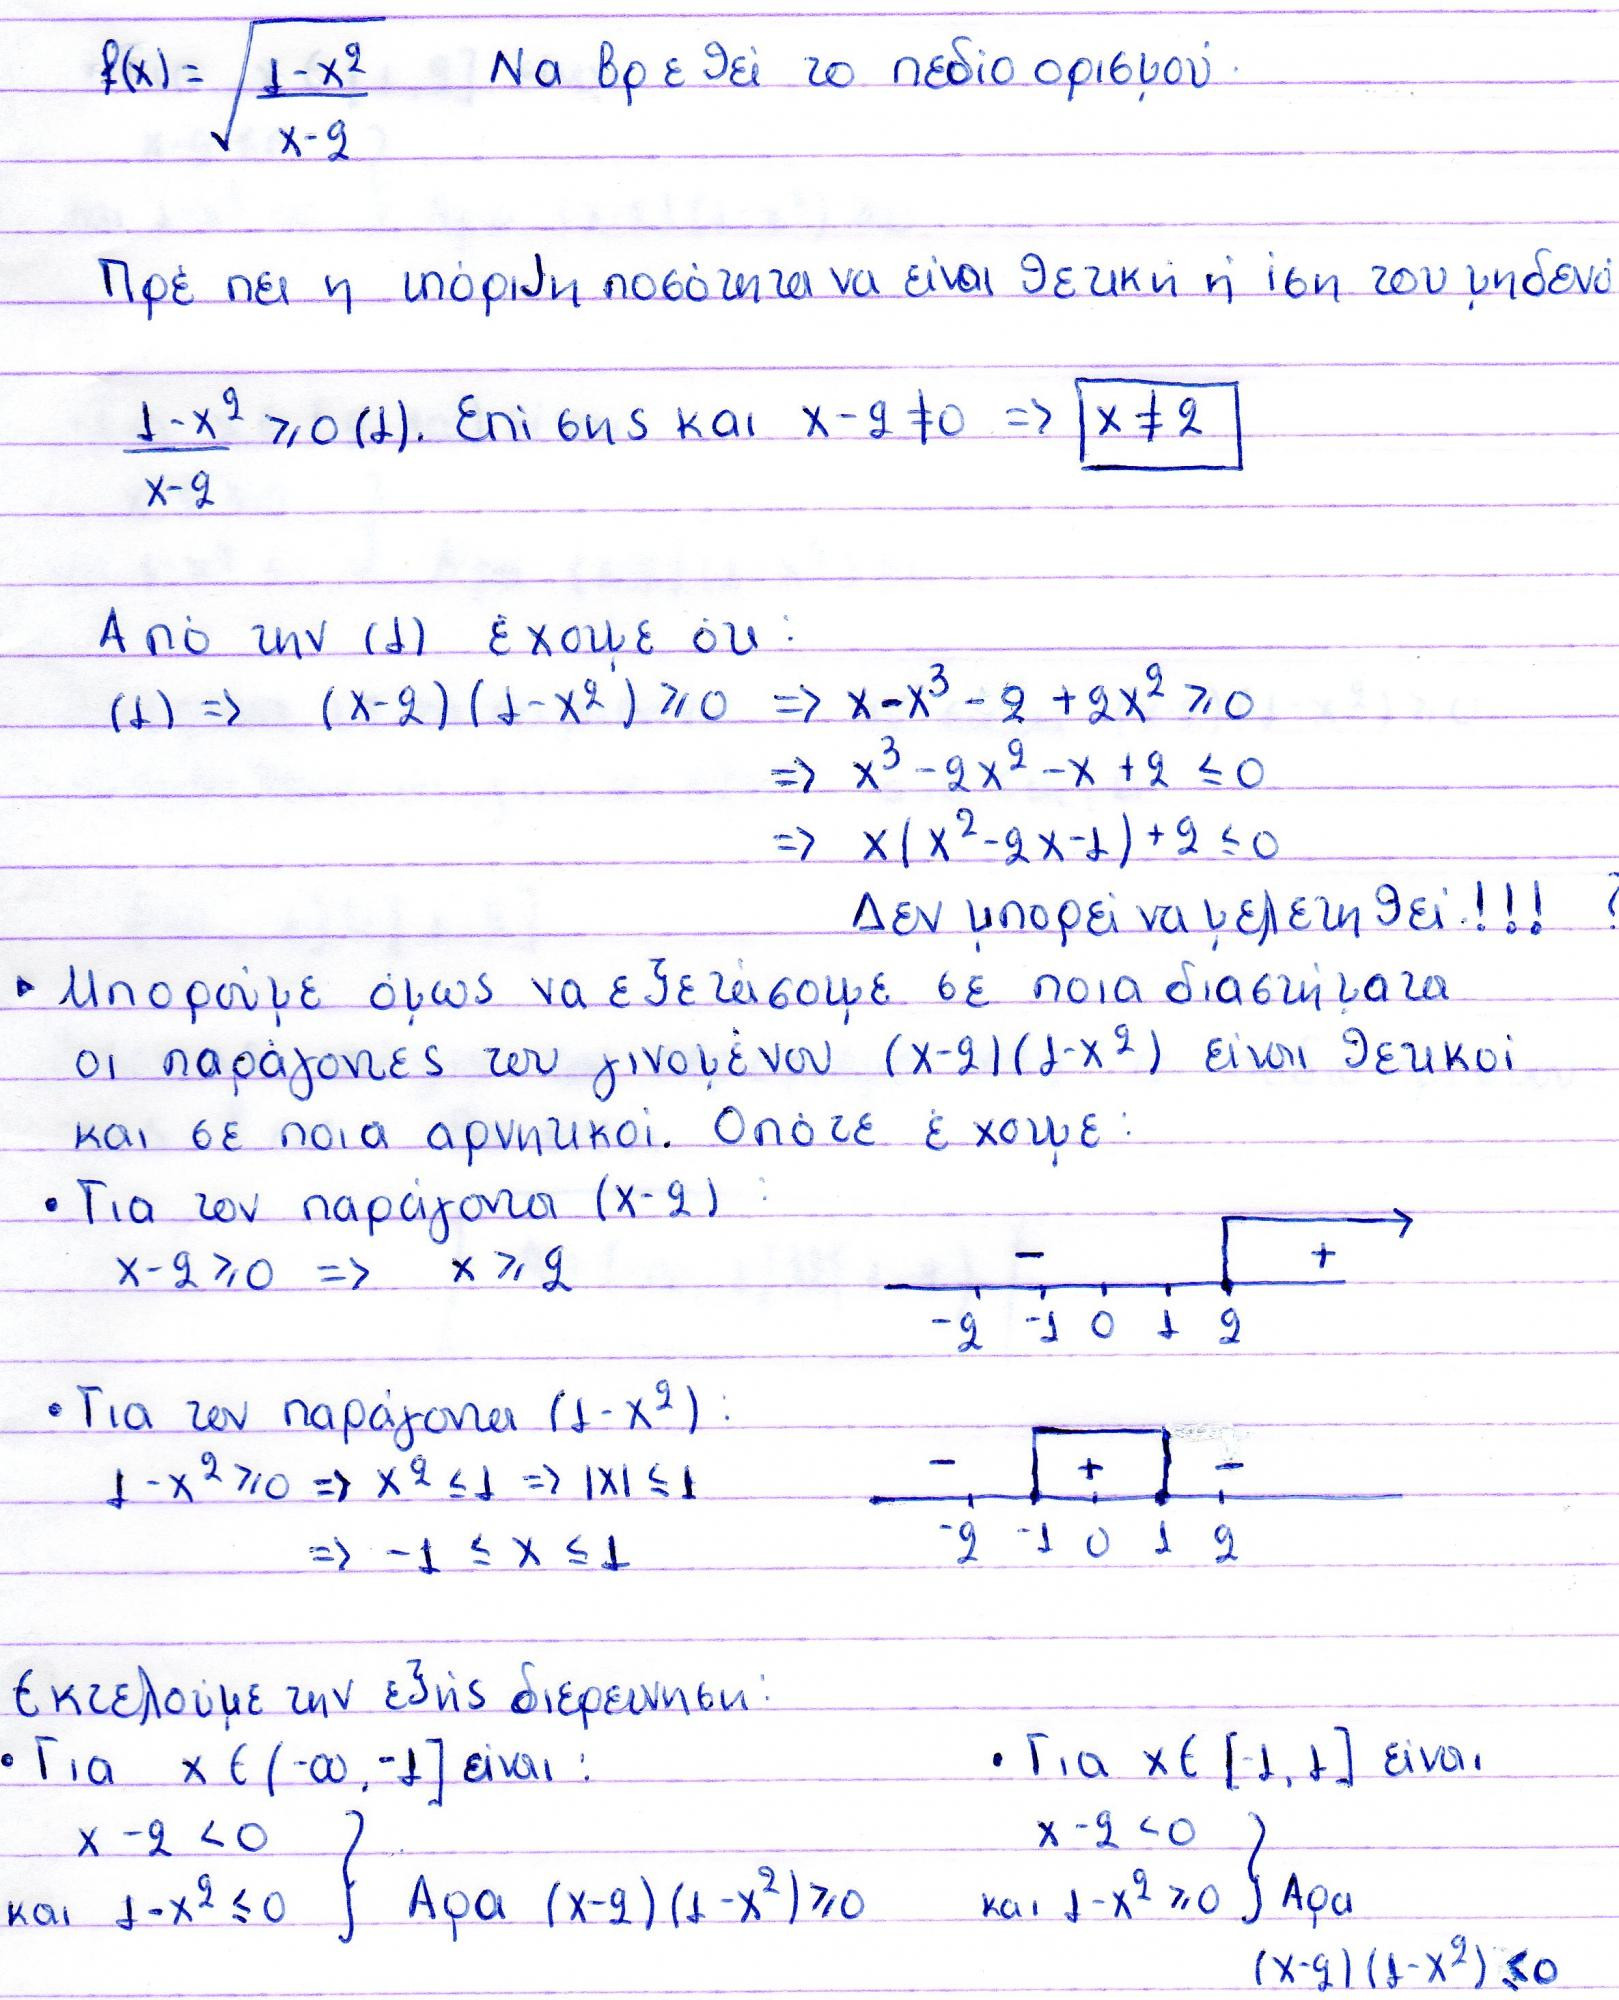 f(x) = √((1-x²)/(x-2)) Να βρεθεί το πεδίο ορισμού.
Πρέπει η υπόριζη ποσότητα να είναι θετική ή ίση του μηδενό
(1-x²)/(x-2) ≥ 0 (1). Επίσης και x-2≠0 => x≠2
Από την (1) έχουμε ότι:
(1) => (x-2)(1-x²) ≥ 0 => x-x³-2+2x² ≥ 0
=> x³-2x²-x+2 ≤ 0
=> x(x²-2x-1)+2 ≤ 0
Δεν μπορεί να μελετηθεί!!! ?
▸ Μπορούμε όμως να εξετάσουμε σε ποια διαστήματα
οι παράγοντες του γινομένου (x-2)(1-x²) είναι θετικοί
και σε ποια αρνητικοί. Οπότε έχουμε:
• Για τον παράγοντα (x-2):
x-2 ≥ 0 => x ≥ 2
- +
-2 -1 0 1 2
• Για τον παράγοντα (1-x²):
1-x² ≥ 0 => x² ≤ 1 => |x| ≤ 1
=> -1 ≤ x ≤ 1
- + -
-2 -1 0 1 2
Εκτελούμε την εξής διερεύνηση:
• Για x ∈ (-∞, -1] είναι:
x-2 < 0
και 1-x² ≤ 0 } Αρα (x-2)(1-x²) ≥ 0
• Για x ∈ [-1, 1] είναι
x-2 < 0
και 1-x² ≥ 0 } Αρα
(x-2)(1-x²) ≤ 0